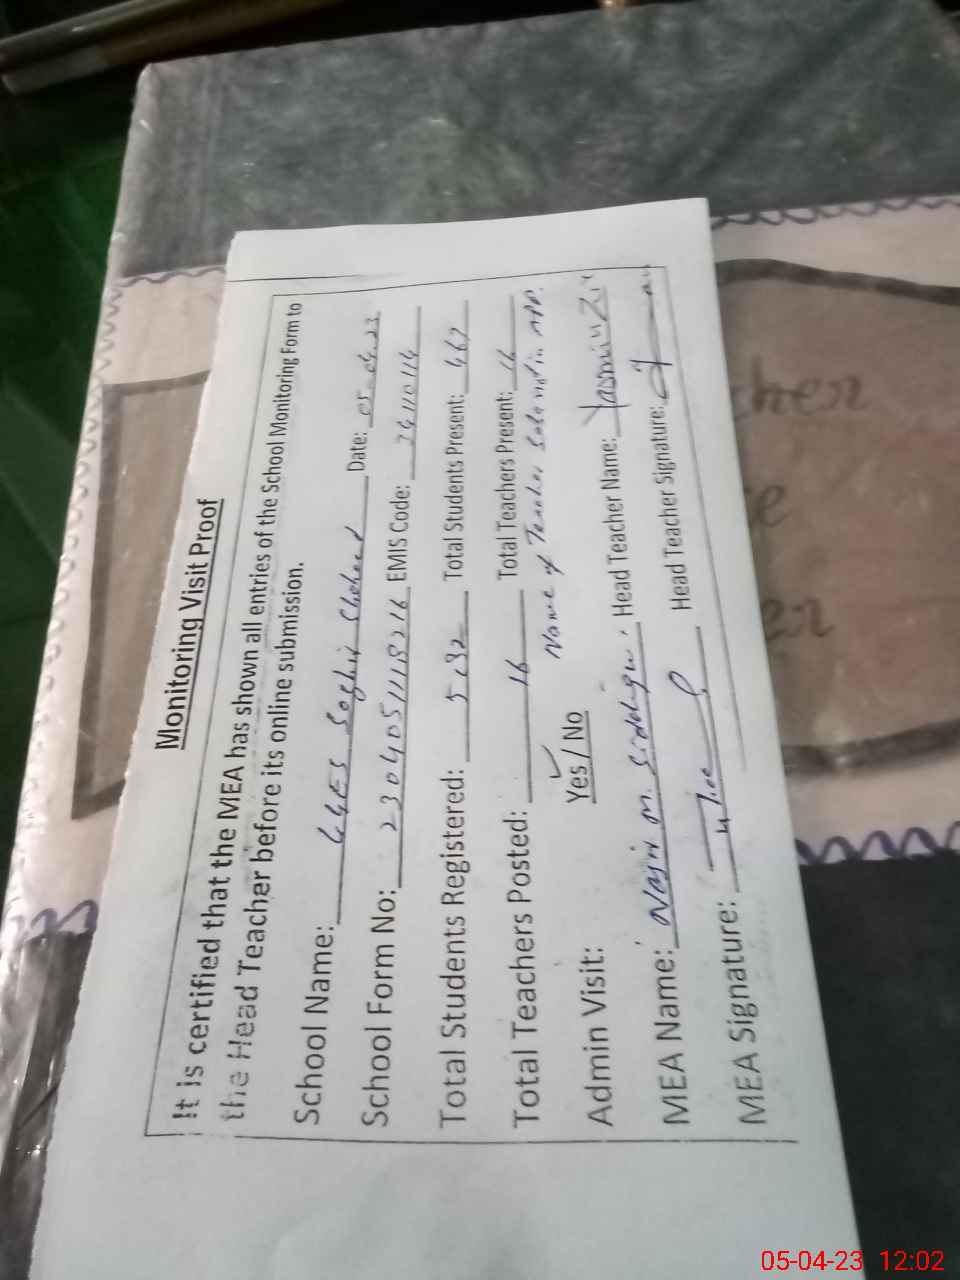 Monitoring Visit Proof
It is certified that the MEA has shown all entries of the School Monitoring Form to
the Head Teacher before its online submission.
School Name: GGES Date: 05-04-23
School Form No: 2304051118216 EMIS Code:
Total Students Registered: Total Students Present: 467
Total Teachers Posted: 16 Total Teachers Present: 16
Name of Teacher in APP.
Admin Visit: Yes / No
MEA Name: Nasir M. Siddique. Head Teacher Name: Yasmin
MEA Signature: Head Teacher Signature:
05-04-23 12:02